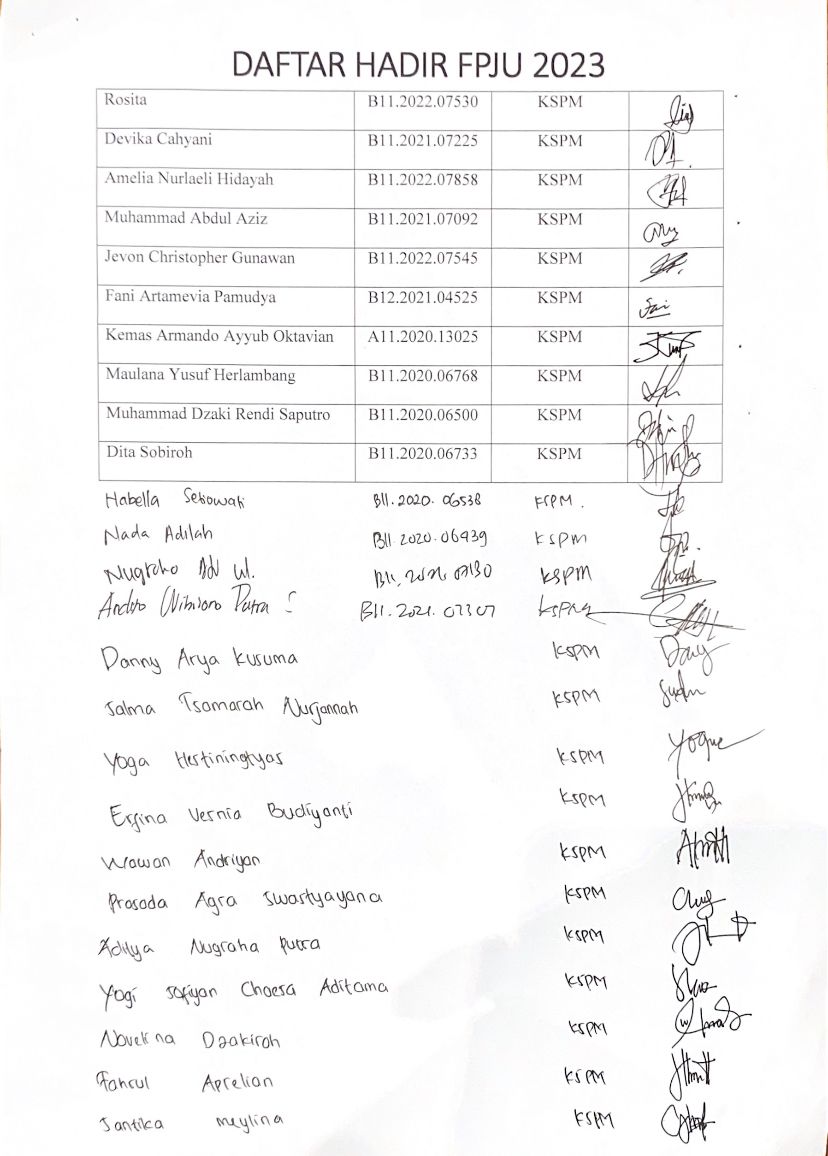 DAFTAR HADIR FPJU 2023
Rosita B11.2022.07530 KSPM
Devika Cahyani B11.2021.07225 KSPM
Amelia Nurlaeli Hidayah B11.2022.07858 KSPM
Muhammad Abdul Aziz B11.2021.07092 KSPM
Jevon Christopher Gunawan B11.2022.07545 KSPM
Fani Artamevia Pamudya B12.2021.04525 KSPM
Kemas Armando Ayyub Oktavian A11.2020.13025 KSPM
Maulana Yusuf Herlambang B11.2020.06768 KSPM
Muhammad Dzaki Rendi Saputro B11.2020.06500 KSPM
Dita Sobiroh B11.2020.06733 KSPM
Habella Setiowati B11.2020.06538 KSPM.
Nada Adilah B11.2020.06939 KSPM
Nugroho KSPM
Putra S B11.2021.07307 KSPM
Danny Arya Kusuma KSPM Dany
Salma Tsamarah Nurjannah KSPM
Yoga Hestiningtyas KSPM
Ersina Vernia Budiyanti KSPM
Wawan Andriyan KSPM
Prasada Agra Swastyayana KSPM
Aditya Nugraha Putra KSPM
Yogi Sofiyan Choesa Aditama KSPM
Novelina Dzakiroh KSPM
Fahrul Aprelian KSPM
Santika Meylina KSPM